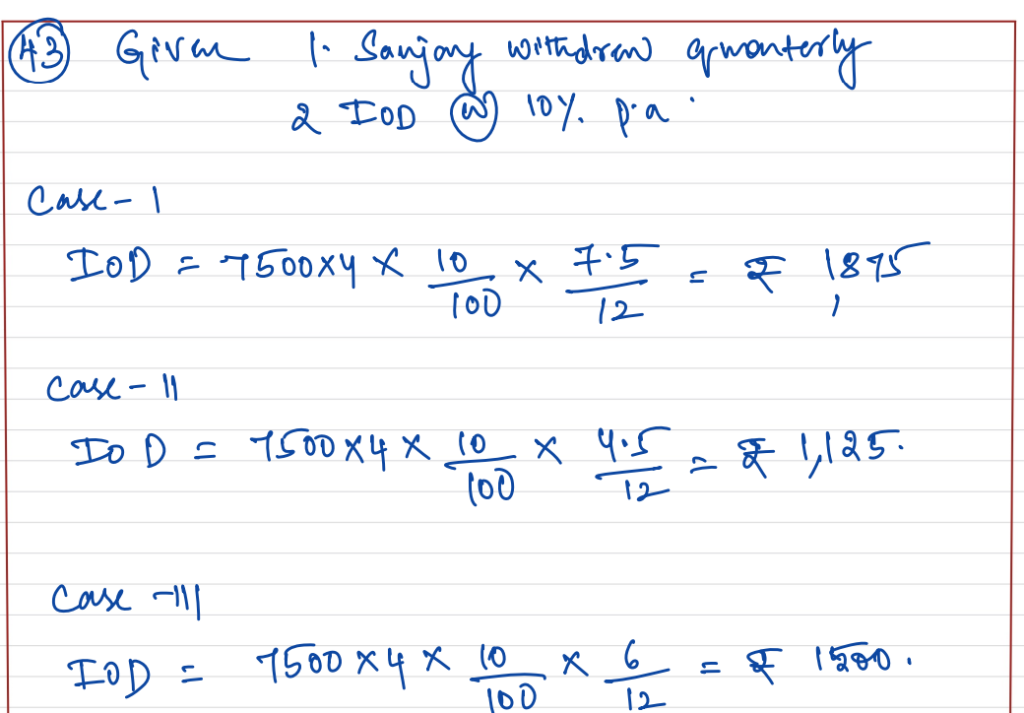 43 Given 1. Sanjay withdrew quarterly
2 IOD @ 10% p.a.
Case - I
IOD = 7500x4 x 10/100 x 7.5/12 = ₹ 1,875
Case - II
IOD = 7500x4 x 10/100 x 4.5/12 = ₹ 1,125.
Case - III
IOD = 7500x4 x 10/100 x 6/12 = ₹ 1500.